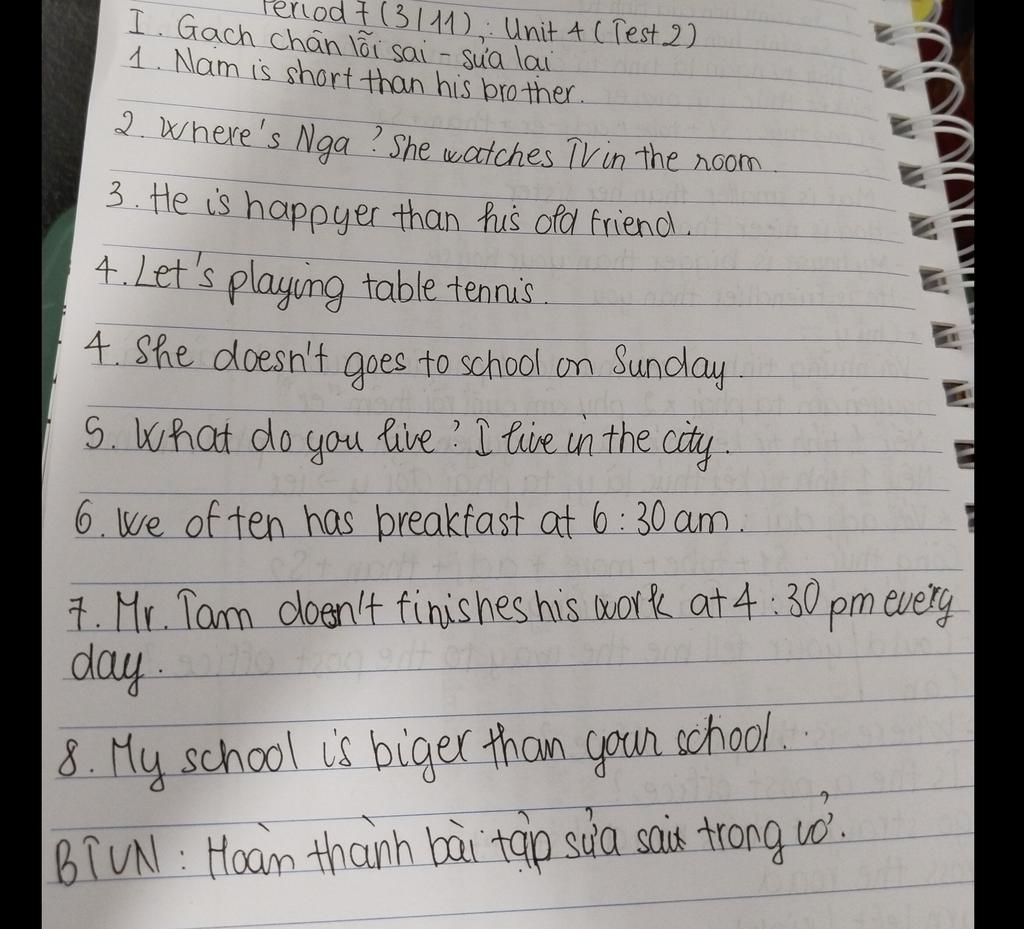 Period 7 (3/11): Unit 4 (Test 2)
I. Gạch chân lỗi sai - sửa lại
1. Nam is short than his brother.
2. Where's Nga? She watches TV in the room.
3. He is happyer than his old friend.
4. Let's playing table tennis.
4. She doesn't goes to school on Sunday.
5. What do you live? I live in the city.
6. We often has breakfast at 6:30 am.
7. Mr. Tam doen't finishes his work at 4:30 pm every
day.
8. My school is biger than your school.
BTVN: Hoàn thành bài tập sửa sai trong vở.